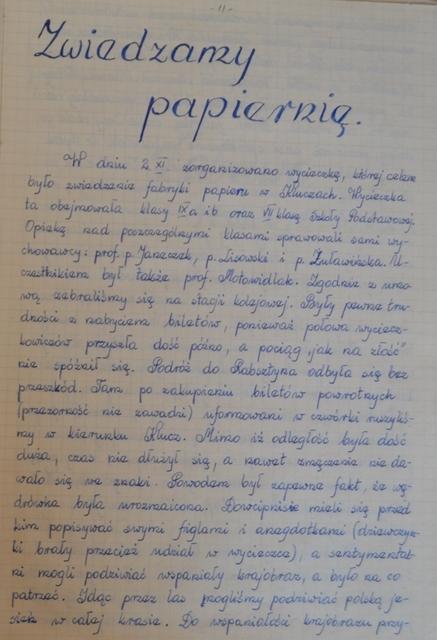 - 11 -
Zwiedzamy
papiernię.
W dniu 2 XI. zorganizowano wycieczkę, której celem
było zwiedzanie fabryki papieru w Kluczach. Wycieczka
ta obejmowała klasy IX a i b oraz VII klasę Szkoły Podstawowej.
Opiekę nad poszczególnymi klasami sprawowali sami wy-
chowawcy: prof. p. Janeczek, p. Lisowski i p. Żuławińska. U-
czestnikiem był także prof. Motowidlak. Zgodnie z umo
wą zebraliśmy się na stacji kolejowej. Były pewne tru-
dności z nabyciem biletów, ponieważ połowa wyciecz-
kowiczów przyszła dość późno, a pociąg „jak na złość"
nie spóźnił się. Podróż do Rabsztyna odbyła się bez
przeszkód. Tam po zakupieniu biletów powrotnych
(przezorność nie zawadzi) uformowani w czwórki ruszyliś-
my w kierunku Klucz. Mimo iż odległość była dość
duża, czas nie dłużył się, a nawet zmęczenie nie da-
wało się we znaki. Powodem był zapewne fakt, że wę-
drówka była urozmaicona. Dowcipnisie mieli się przed
kim popisywać swymi figlami i anegdotkami (dziewczyn-
ki brały przecież udział w wycieczce), a sentymental-
ni mogli podziwiać wspaniały krajobraz, a było na co
patrzeć. Idąc przez las mogliśmy podziwiać polską je-
sień w całej krasie. Do wspaniałości krajobrazu przy-